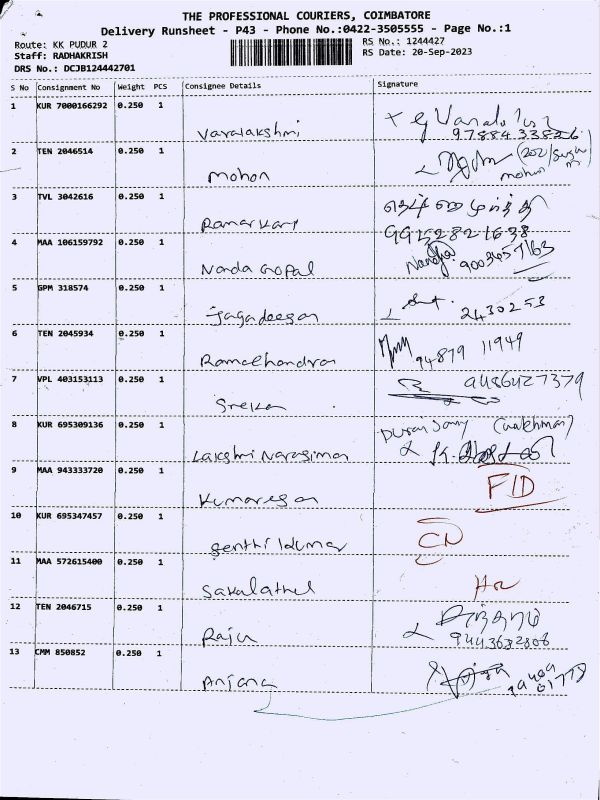 THE PROFESSIONAL COURIERS, COIMBATORE
Delivery Runsheet - P43 - Phone No.:0422-3505555 - Page No.:1
Route: KK PUDUR 2 RS No.: 1244427
Staff: RADHAKRISH RS Date: 20-Sep-2023
DRS No.: DCJB124442701
S No Consignment No Weight PCS Consignee Details Signature
1 KUR 7000166292 0.250 1
Varalakshmi 9788433826
2 TEN 2046514 0.250 1
Mohan mohan
3 TVL 3042616 0.250 1
9952821638
4 MAA 106159792 0.250 1
Nanda Gopal Nandha 9003457163
5 GPM 318574 0.250 1
Jagadeesan 2430253
6 TEN 2045934 0.250 1
Ramachandran 94879 11949
7 VPL 403153113 0.250 1
9486427379
8 KUR 695309136 0.250 1
Lakshmi Narasiman
9 MAA 943333720 0.250 1
Kumaresan
10 KUR 695347457 0.250 1
Senthil kumar
11 MAA 572615400 0.250 1
12 TEN 2046715 0.250 1
Raju
13 CMM 850852 0.250 1
Anjana